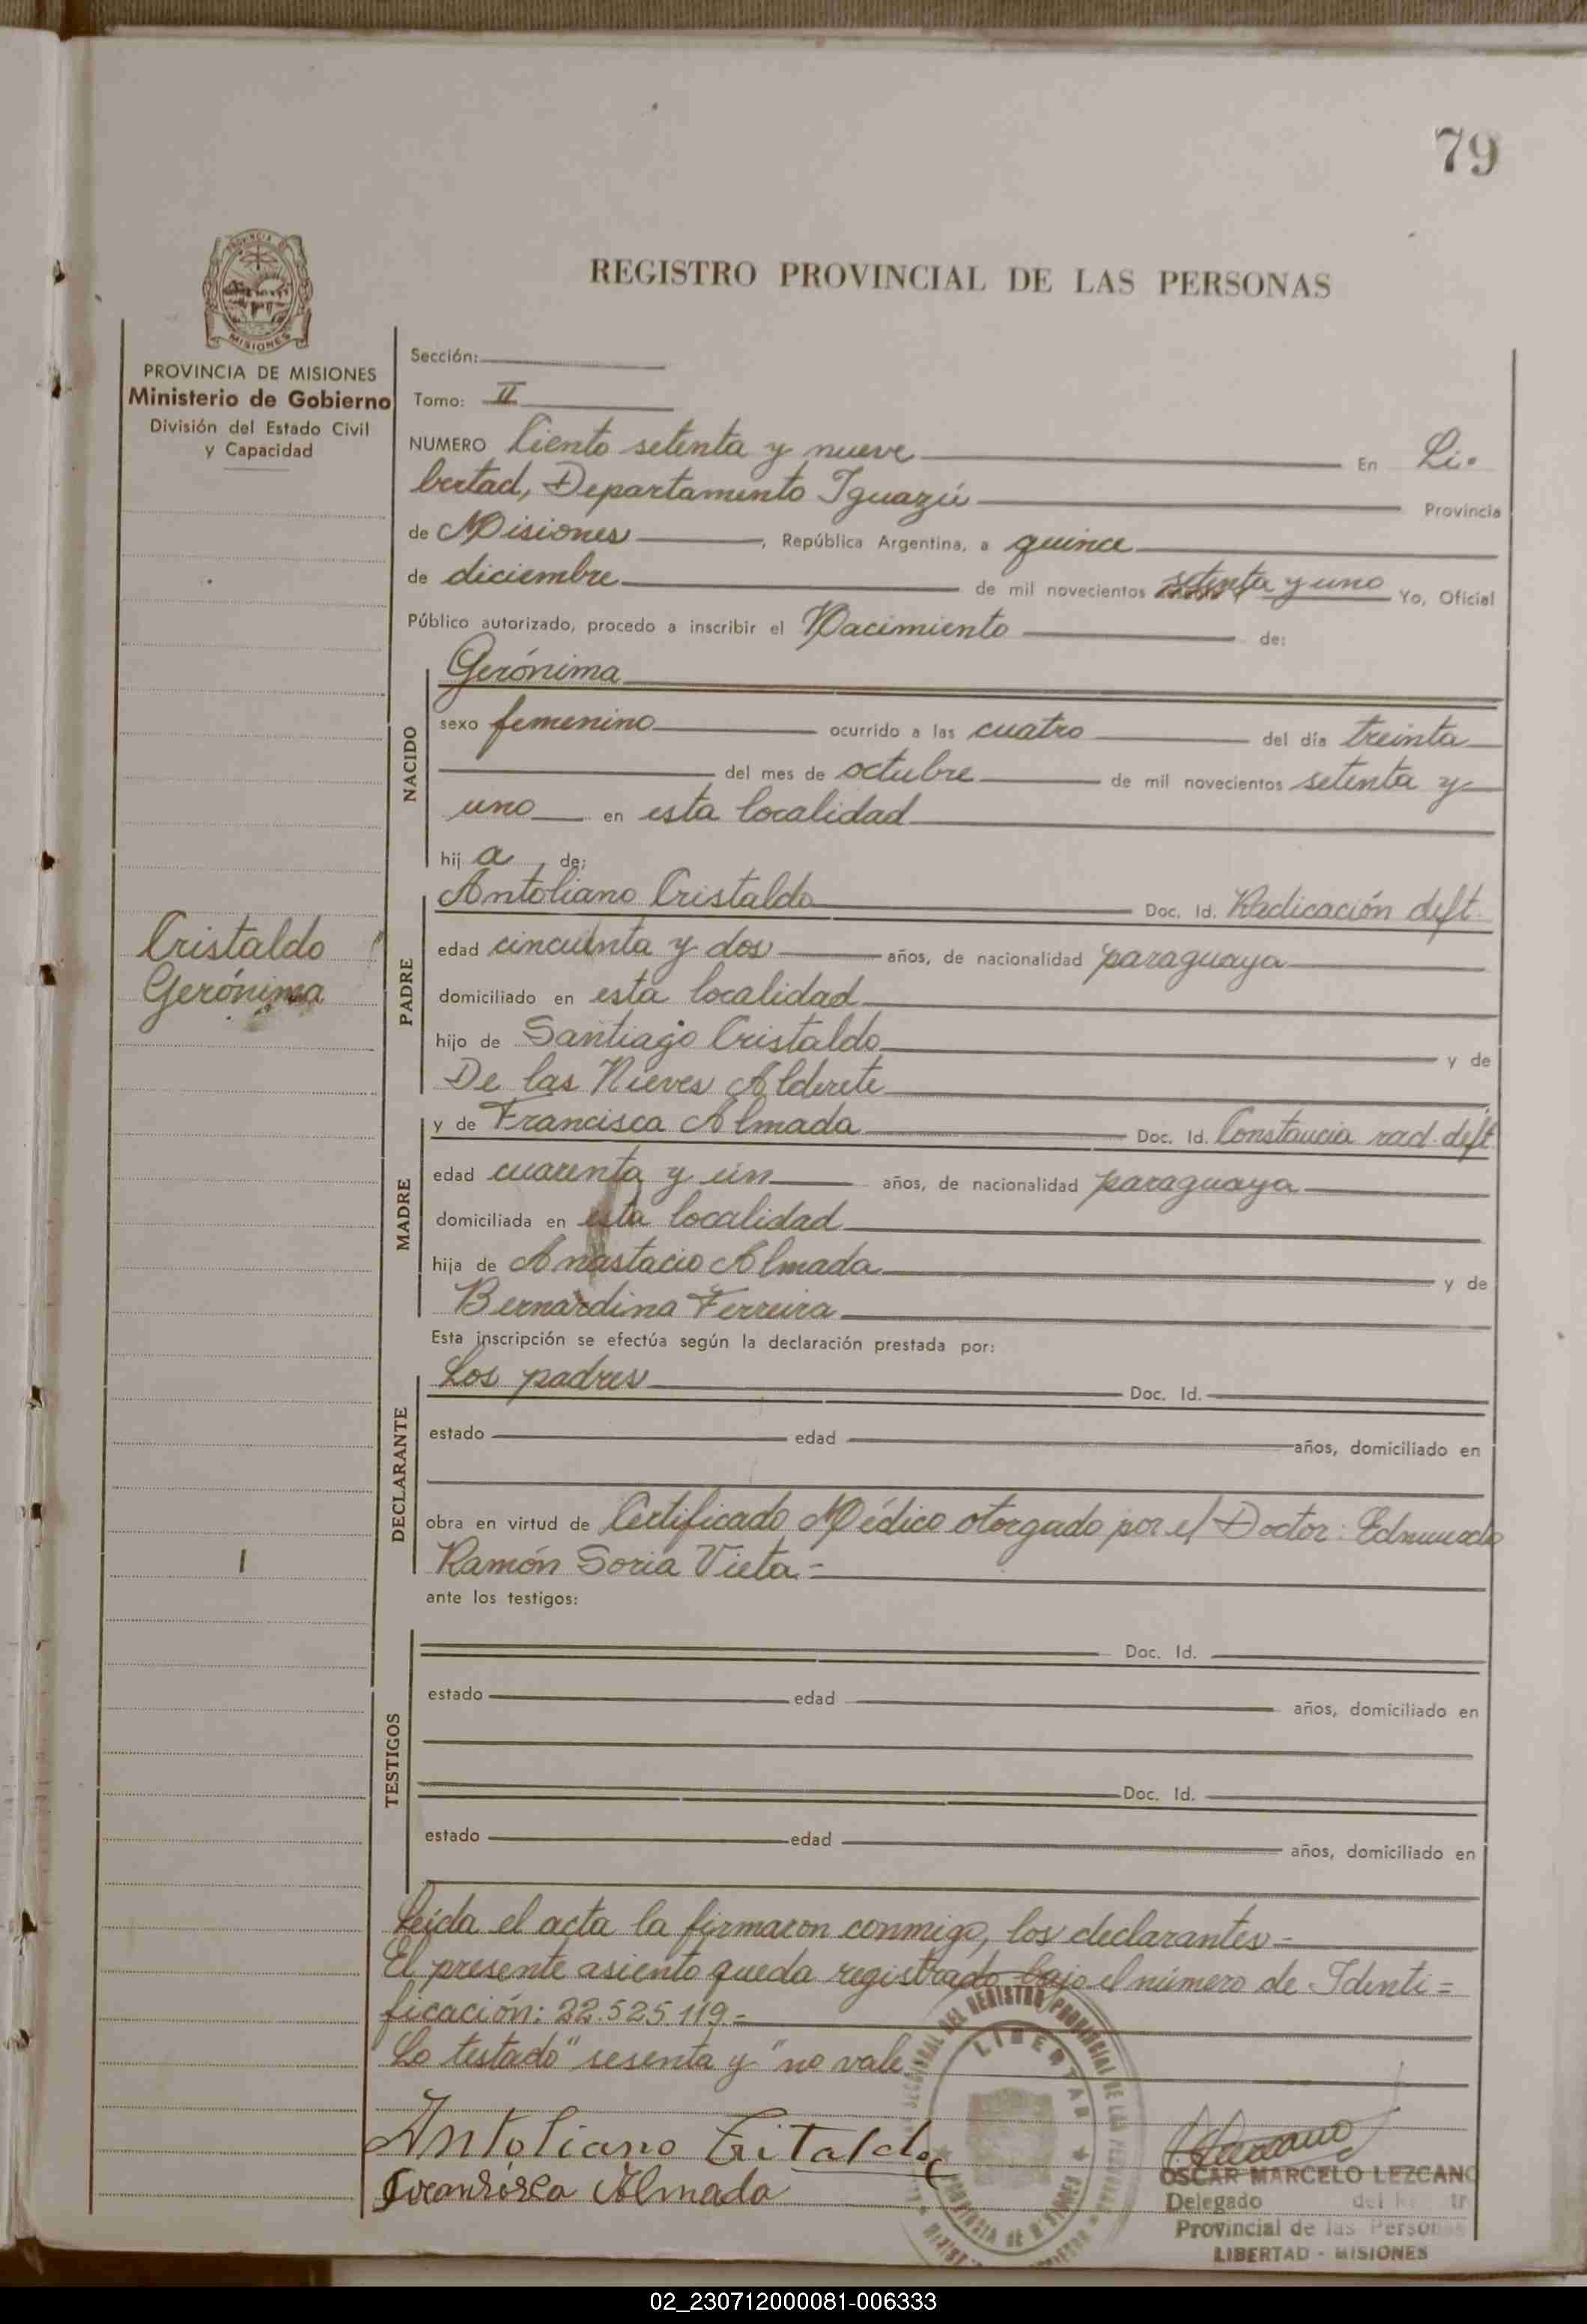 79
PROVINCIA DE
MISIONES
REGISTRO PROVINCIAL DE LAS PERSONAS
PROVINCIA DE MISIONES
Ministerio de Gobierno
División del Estado Civil
y Capacidad
Sección:
Tomo: II
NUMERO Ciento setenta y nueve En Li-
bertad, Departamento Iguazú Provincia
de Misiones, República Argentina, a quince
de diciembre de mil novecientos setenta y uno Yo, Oficial
Público autorizado, procedo a inscribir el Nacimiento de:
NACIDO
Gerónima
sexo femenino ocurrido a las cuatro del día treinta
del mes de octubre de mil novecientos setenta y
uno en esta localidad
hij a, de:
Cristaldo
Gerónima
PADRE
Antoliano Cristaldo Doc. Id. Radicación deft.
edad cincuenta y dos años, de nacionalidad paraguaya
domiciliado en esta localidad
hijo de Santiago Cristaldo y de
De las Nieves Alderete
MADRE
y de Francisca Almada Doc. Id. Constancia rad. deft
edad cuarenta y un años, de nacionalidad paraguaya
domiciliada en esta localidad
hija de Anastacio Almada y de
Bernardina Ferreira
Esta inscripción se efectúa según la declaración prestada por:
DECLARANTE
Los padres Doc. Id.
estado edad años, domiciliado en
obra en virtud de Certificado Médico otorgado por el Doctor: Edmundo
Ramón Soria Vieta.=
ante los testigos:
TESTIGOS
Doc. Id.
estado edad años, domiciliado en
Doc. Id.
estado edad años, domiciliado en
Leída el acta la firmaron conmigo, los declarantes=
El presente asiento queda registrado bajo el número de Identi=
ficación: 22.525.119.=
Lo testado "sesenta y" no vale.
Antoliano Critaldo
Francisca Almada
SECCIONAL DEL REGISTRO PROVINCIAL DE LAS
LIBERTAD
PROVINCIA DE MISIONES
OSCAR MARCELO LEZCANO
Delegado del
Provincial de las Personas
LIBERTAD - MISIONES
02_230712000081-006333